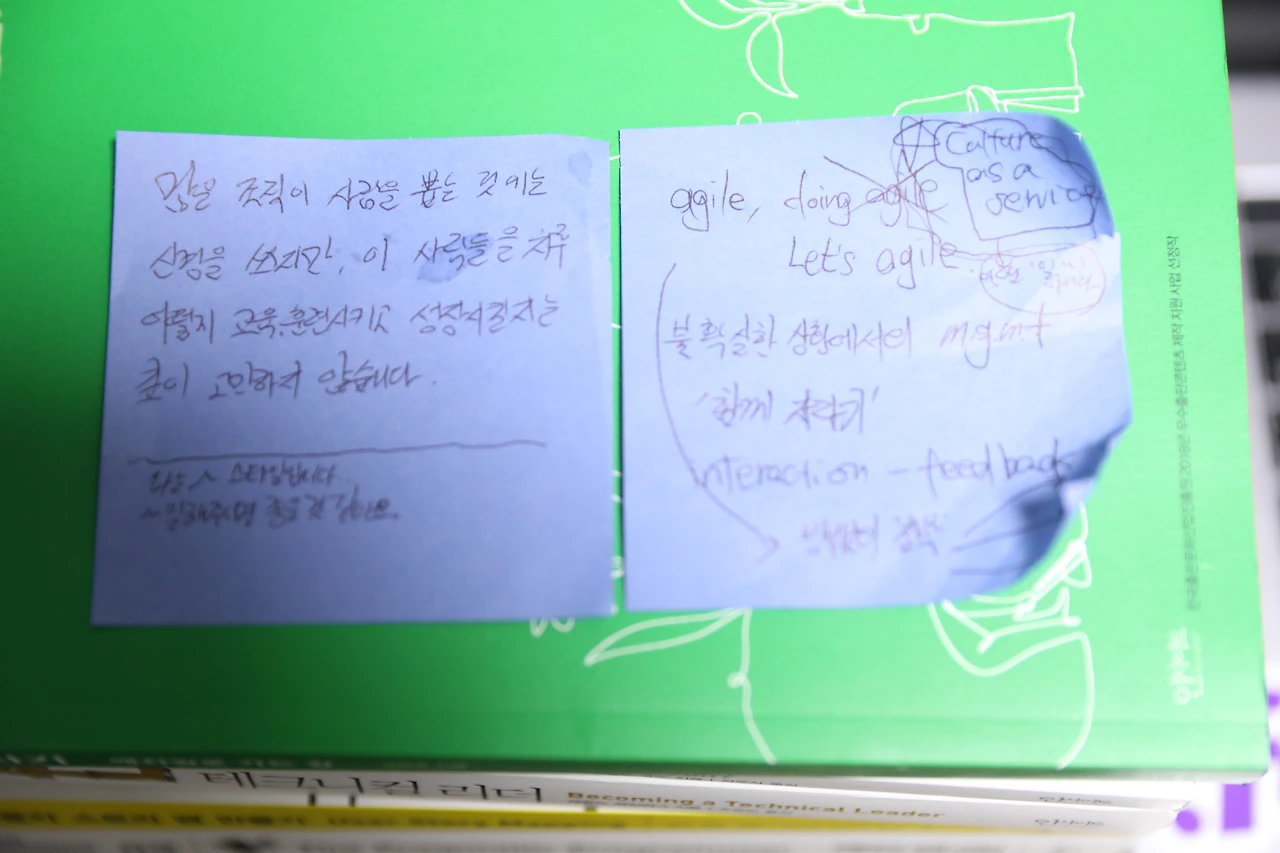 많은 조직이 사람을 뽑는 것에는
신경을 쓰지만, 이 사람들을 차후
어떻게 교육훈련시키고 성장시킬지는
깊이 고민하지 않습니다.
나는 ~ 스타일입니다
~ 말해주면 좋을 것 같아요.
Culture
as a
service
agile, doing agile
Let's agile.
불확실한 상황에서의 mgmt
'함께 자라기'
interaction - feedback
한국출판문화산업진흥원 2018년 우수출판콘텐츠 제작 지원 사업 선정작
인사이트
테크니컬 리더
Becoming a Technical Leader
User Story Mapping